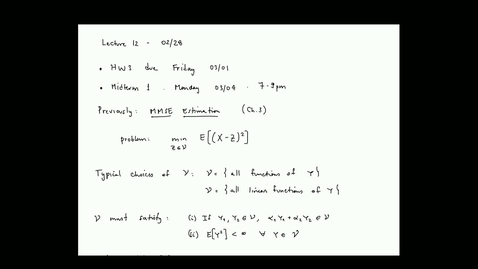 Lecture 12 - 02/28
• HW3 due Friday 03/01
• Midterm 1 . Monday 03/04 . 7-9pm
Previously: MMSE Estimation (Ch.3)
problem: min E[(X-Z)²]
Z∈V
Typical choices of V: V = { all functions of Y }
V = { all linear functions of Y }
V must satisfy: (i) If Y₁, Y₂ ∈ V, α₁Y₁ + α₂Y₂ ∈ V
(ii) E[Y²] < ∞ ∀ Y ∈ V